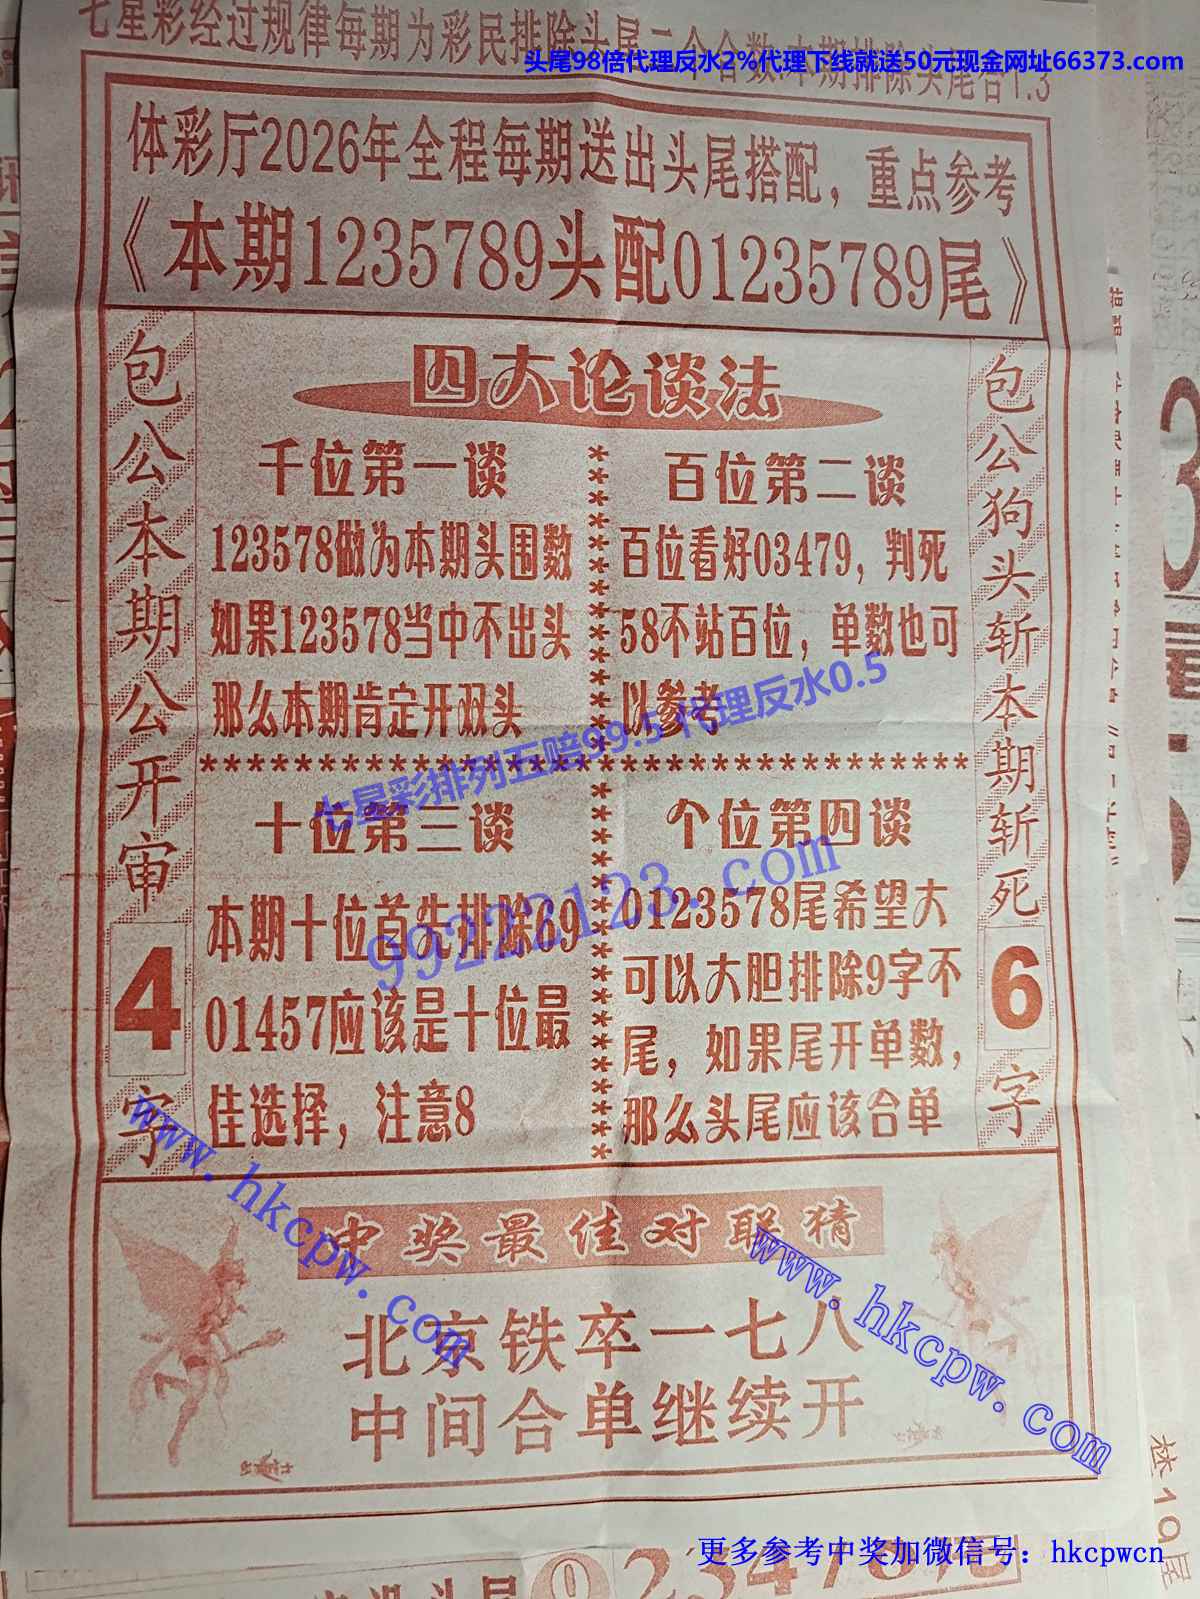 七星彩经过规律每期为彩民排除头尾二个合数.本期排除头尾合1.3
头尾98倍代理反水2%代理下线就送50元现金网址66373.com
体彩厅2026年全程每期送出头尾搭配，重点参考
《本期1235789头配01235789尾》
包公本期公开审4字
四大论谈法
千位第一谈
123578做为本期头围数
如果123578当中不出头
那么本期肯定开双头
百位第二谈
百位看好03479，判死
58不站百位，单数也可
以参考
七星彩排列五赔99.5代理反水0.5
十位第三谈
本期十位首先排除69
01457应该是十位最
佳选择，注意8
个位第四谈
0123578尾希望大
可以大胆排除9字不
尾，如果尾开单数，
那么头尾应该合单
99222123.com
包公狗头斩本期斩死6字
中奖最佳对联猜
北京铁卒一七八
中间合单继续开
www.hkcpw.com
www.hkcpw.com
更多参考中奖加微信号：hkcpwcn